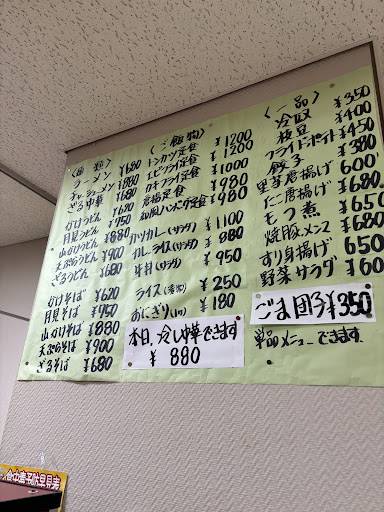 〈麺類〉
ラーメン ¥680
チャーシューメン ¥880
ざる中華 ¥680
かけうどん
月見うどん
山かけうどん ¥880
天ぷらうどん ¥900
ざるうどん ¥680
かけそば ¥620
月見そば ¥950
山かけそば ¥880
天ぷらそば ¥900
ざるそば ¥680
〈ご飯物〉
トンカツ定食 ¥1200
エビフライ定食 ¥1200
カキフライ定食 ¥1000
唐揚定食 ¥980
和風ハンバーグ定食 ¥980
カツカレー(サラダ) ¥1100
カレーライス(サラダ) ¥880
牛丼(サラダ) ¥950
ライス ¥250
おにぎり ¥180
本日、冷し中華できます
¥880
〈一品〉
冷奴 ¥350
枝豆 ¥400
フライドポテト ¥450
餃子 ¥380
唐揚げ 600
たこ唐揚げ ¥680
もつ煮 ¥650
焼豚メンマ ¥680
すり身揚げ 650
野菜サラダ ¥60
ごま団子¥350
単品メニューできます。